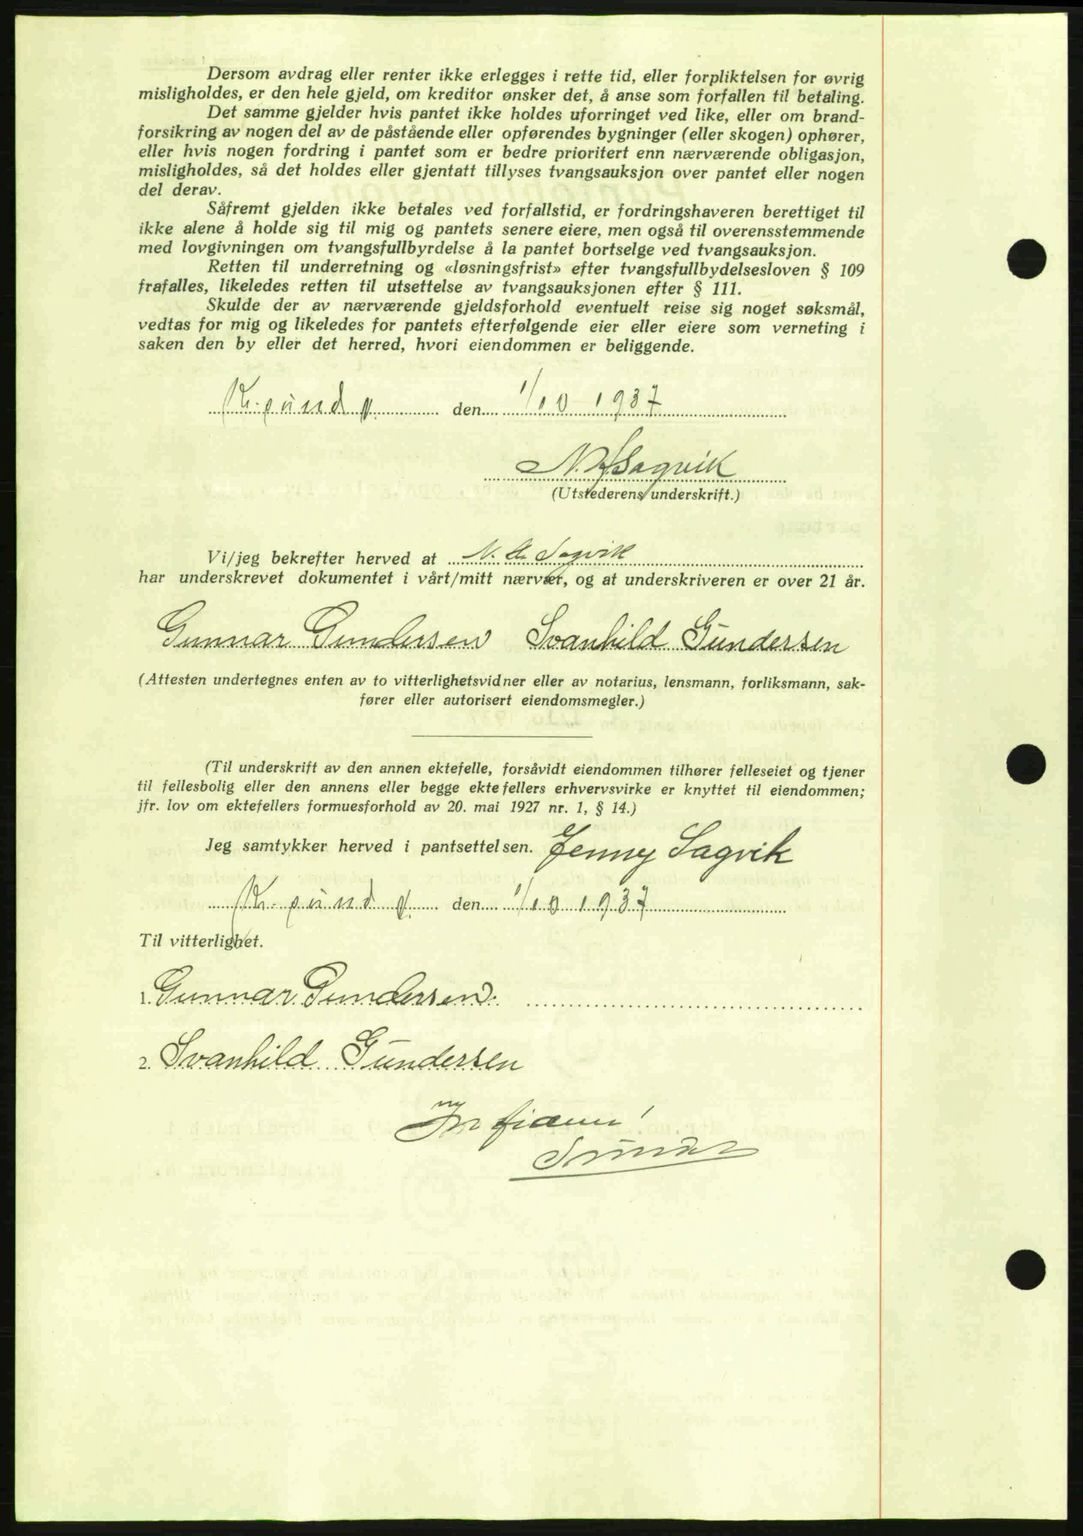 Dersom avdrag eller renter ikke erlegges i rette tid, eller forpliktelsen for øvrig
misligholdes, er den hele gjeld, om kreditor ønsker det, å anse som forfallen til betaling.
Det samme gjelder hvis pantet ikke holdes uforringet ved like, eller om brand-
forsikring av nogen del av de påstående eller opførendes bygninger (eller skogen) ophører,
eller hvis nogen fordring i pantet som er bedre prioritert enn nærværende obligasjon,
misligholdes, så det holdes eller gjentatt tillyses tvangsauksjon over pantet eller nogen
del derav.
Såfremt gjelden ikke betales ved forfallstid, er fordringshaveren berettiget til
ikke alene å holde sig til mig og pantets senere eiere, men også til overensstemmende
med lovgivningen om tvangsfullbyrdelse å la pantet bortselge ved tvangsauksjon.
Retten til underretning og «løsningsfrist» efter tvangsfullbydelsesloven § 109
frafalles, likeledes retten til utsettelse av tvangsauksjonen efter § 111.
Skulde der av nærværende gjeldsforhold eventuelt reise sig noget søksmål,
vedtas for mig og likeledes for pantets efterfølgende eier eller eiere som verneting i
saken den by eller det herred, hvori eiendommen er beliggende.
Kr.sund N. den 1/10 1937
Sagvik
(Utstederens underskrift.)
Vi/jeg bekrefter herved at N. Sagvik
har underskrevet dokumentet i vårt/mitt nærvær, og at underskriveren er over 21 år.
Gunnar Gundersen Svanhild Gundersen
(Attesten undertegnes enten av to vitterlighetsvidner eller av notarius, lensmann, forliksmann, sak-
fører eller autorisert eiendomsmegler.)
(Til underskrift av den annen ektefelle, forsåvidt eiendommen tilhører felleseiet og tjener
til fellesbolig eller den annens eller begge ektefellers erhvervsvirke er knyttet til eiendommen;
jfr. lov om ektefellers formuesforhold av 20. mai 1927 nr. 1, § 14.)
Jeg samtykker herved i pantsettelsen. Jenny Sagvik
Kr.sund N. den 1/10 1937
Til vitterlighet.
1. Gunnar Gundersen.
2. Svanhild Gundersen